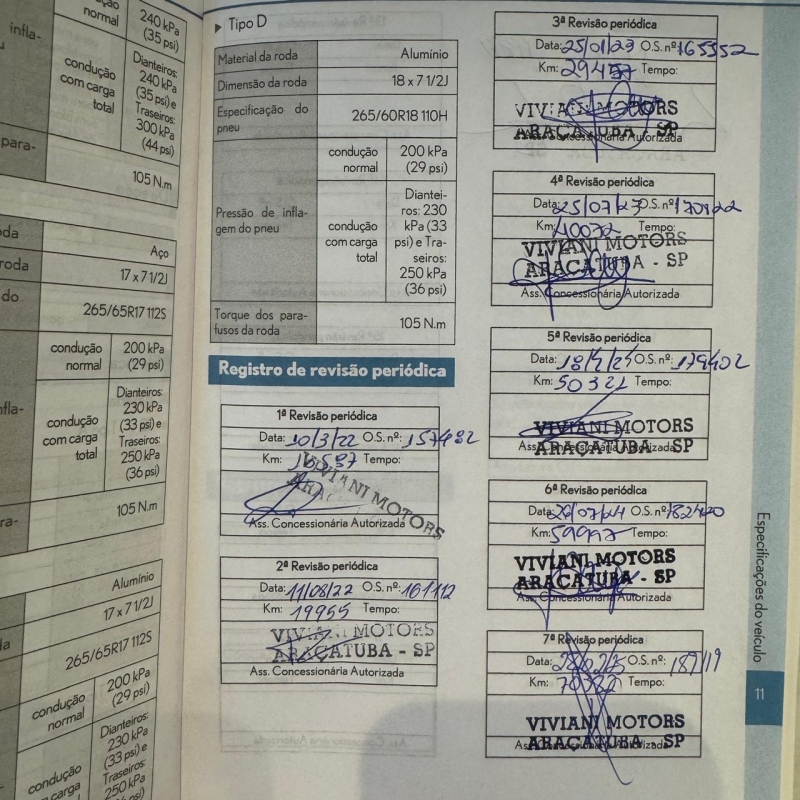 240 kPa
(35 psi)
condução
com carga
total
Dianteiros:
240 kPa
(35 psi) e
Traseiros:
300 kPa
(44 psi)
105 N.m
Aço
17 x 7 1/2J
265/65R17 112S
condução
normal
200 kPa
(29 psi)
condução
com carga
total
Dianteiros:
230 kPa
(33 psi) e
Traseiros:
250 kPa
(36 psi)
105 N.m
Alumínio
17 x 7 1/2J
265/65R17 112S
condução
normal
200 kPa
(29 psi)
Dianteiros:
230 kPa
(33 psi) e
Traseiros:
250 kPa
condução
com carga
Tipo D
Material da roda Alumínio
Dimensão da roda 18 x 7 1/2J
Especificação do
pneu
265/60R18 110H
Pressão de infla-
gem do pneu
condução
normal
200 kPa
(29 psi)
condução
com carga
total
Diantei-
ros: 230
kPa (33
psi) e Tra-
seiros:
250 kPa
(36 psi)
Torque dos para-
fusos da roda
105 N.m
Registro de revisão periódica
1ª Revisão periódica
Data: 10/3/22 O.S. nº: 157482
Km: Tempo:
VIVIANI MOTORS
Ass. Concessionária Autorizada
2ª Revisão periódica
Data: 11/08/22 O.S. nº: 161112
Km: 19955 Tempo:
VIVIANI MOTORS
ARAÇATUBA - SP
Ass. Concessionária Autorizada
3ª Revisão periódica
Data: 25/01/23 O.S. nº 165552
Km: Tempo:
VIVIANI MOTORS
ARAÇATUBA - SP
Concessionária Autorizada
4ª Revisão periódica
Data: 25/07/23 O.S. nº 170922
Km: 40072 Tempo:
VIVIANI MOTORS
ARAÇATUBA - SP
Ass. Concessionária Autorizada
5ª Revisão periódica
Data: O.S. nº: 179402
Km: 50321 Tempo:
VIVIANI MOTORS
ARAÇATUBA - SP
Ass. Concessionária Autorizada
6ª Revisão periódica
Data: O.S. nº: 182420
Km: 59997 Tempo:
VIVIANI MOTORS
ARAÇATUBA - SP
Ass. Concessionária Autorizada
7ª Revisão periódica
Data: O.S. nº:
Km: 70382 Tempo:
VIVIANI MOTORS
ARAÇATUBA - SP
Ass. Concessionária Autorizada
Especificações do veículo
11